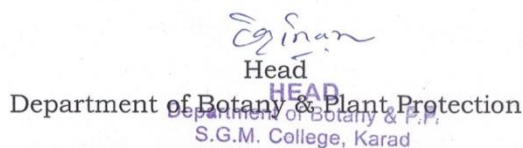 Head
HEAD
Department of Botany & Plant Protection
Department of Botany & P.P.
S.G.M. College, Karad